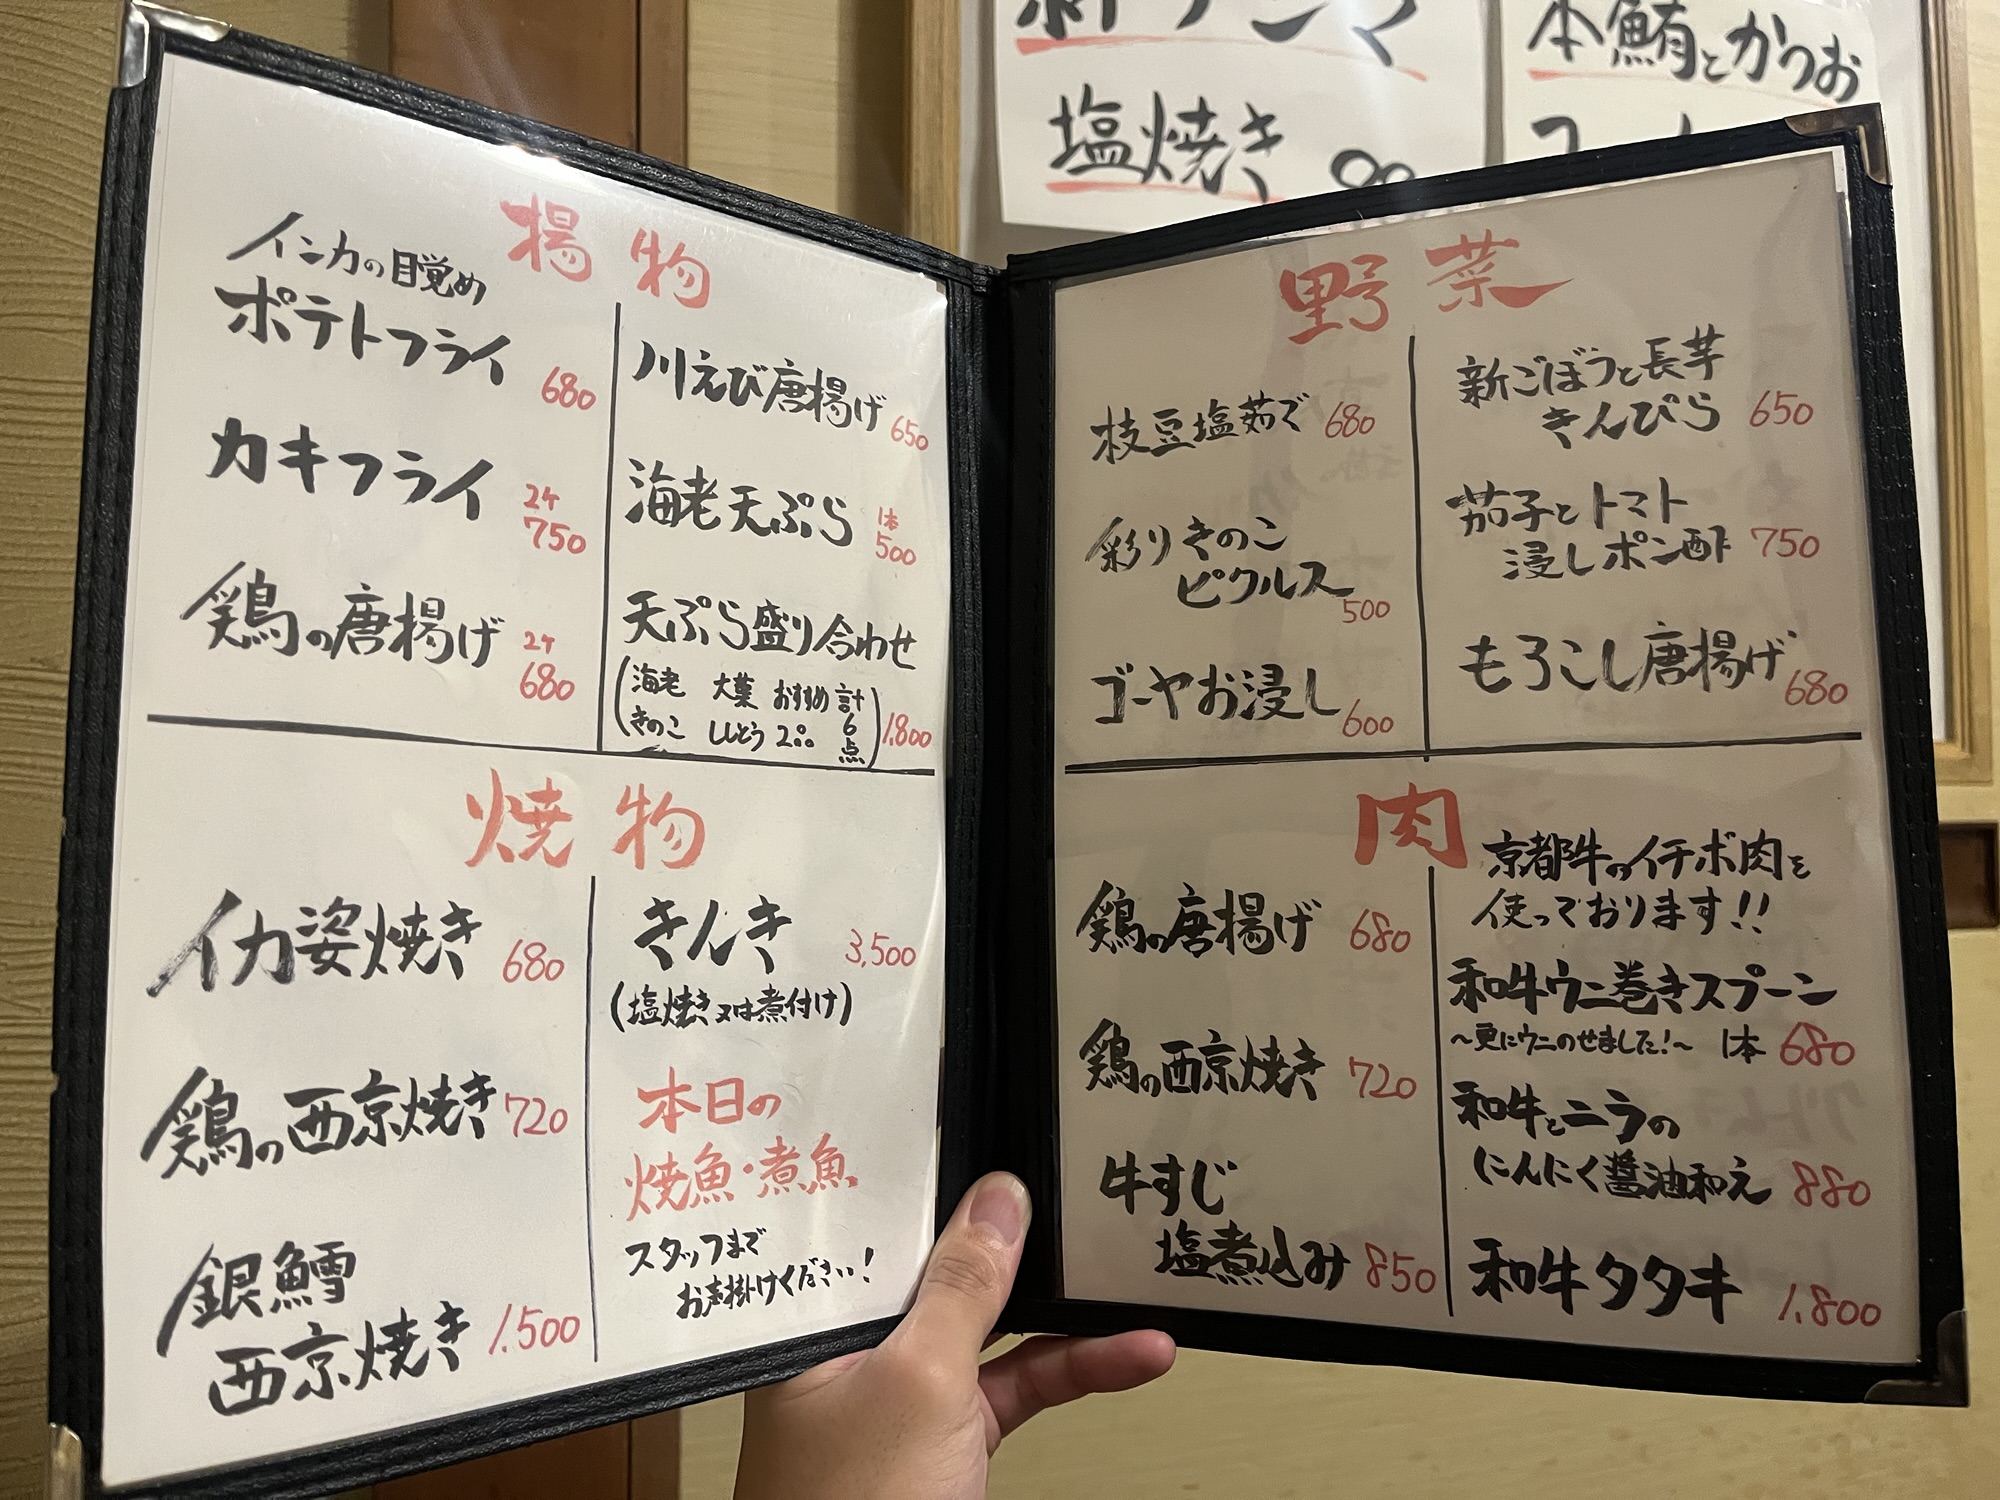 揚物
インカの目覚め
ポテトフライ
680
カキフライ
2ケ
750
鶏の唐揚げ
2ケ
680
川えび唐揚げ
650
海老天ぷら
1本
500
天ぷら盛り合わせ
(海老 大葉 おすすめ 計6点
きのこ ししとう 2つ)
1.800
焼物
イカ姿焼き
680
鶏の西京焼き
720
銀鱈
西京焼き
1.500
きんき
3,500
(塩焼き又は煮付け)
本日の
焼魚・煮魚
スタッフまで
お声掛けください!
野菜
枝豆塩茹で
680
彩りきのこ
ピクルス
500
ゴーヤお浸し
600
新ごぼうと長芋
きんぴら
650
茄子とトマト
浸しポン酢
750
もろこし唐揚げ
680
肉
鶏の唐揚げ
680
鶏の西京焼き
720
牛すじ
塩煮込み
850
京都牛のイチボ肉を
使っております!!
和牛ウニ巻きスプーン
〜更にウニのせました!〜 1本 680
和牛とニラの
にんにく醤油和え
880
和牛タタキ
1.800
塩焼き
本鮪とかつお